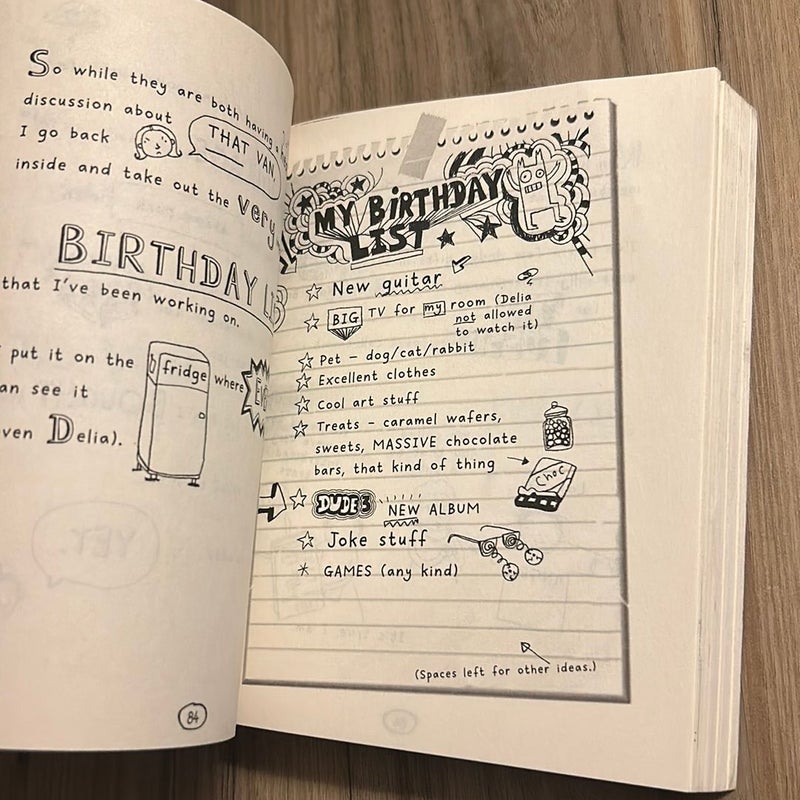 So while they are both having a
discussion about
THAT VAN
I go back
inside and take out the very
BIRTHDAY
that I've been working on.
put it on the
fridge
where
see it
Delia).
84
MY BiRTHDAY
LIST
New guitar
BIG TV for my room (Delia
not allowed
to watch it)
Pet – dog/cat/rabbit
Excellent clothes
Cool art stuff
Treats – caramel wafers,
sweets, MASSIVE chocolate
bars, that kind of thing
Choc
DUDE3 NEW ALBUM
Joke stuff
GAMES (any kind)
(Spaces left for other ideas.)